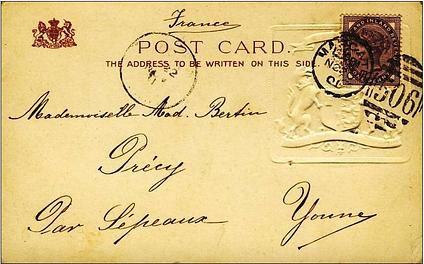 France
POST CARD.
THE ADDRESS TO BE WRITTEN ON THIS SIDE.
22
906
Mademoiselle Mad. Bertin
Précy
Par Sépeaux
Yonne